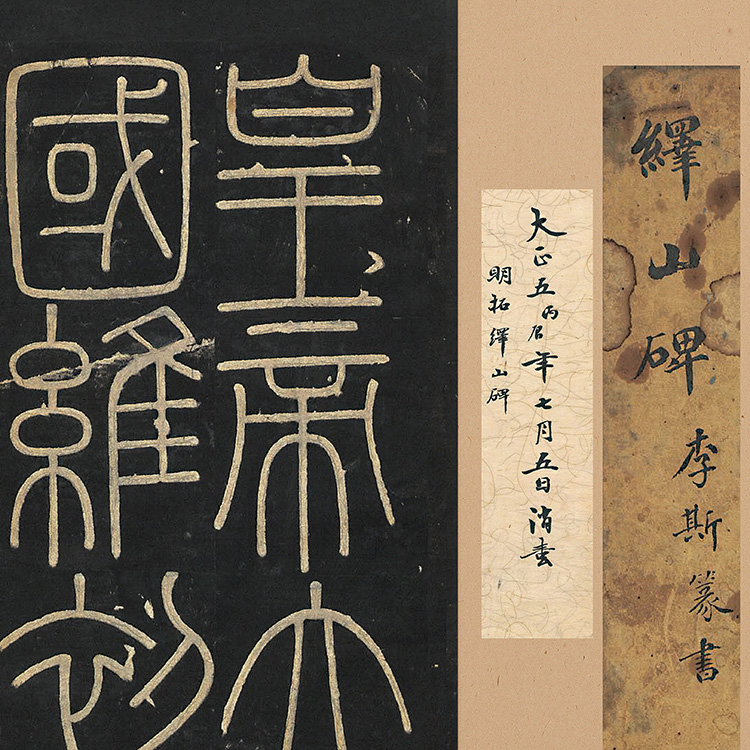 繹山碑 李斯篆書
大正五丙辰年七月五日消
明拓繹山碑
皇帝立
國維初